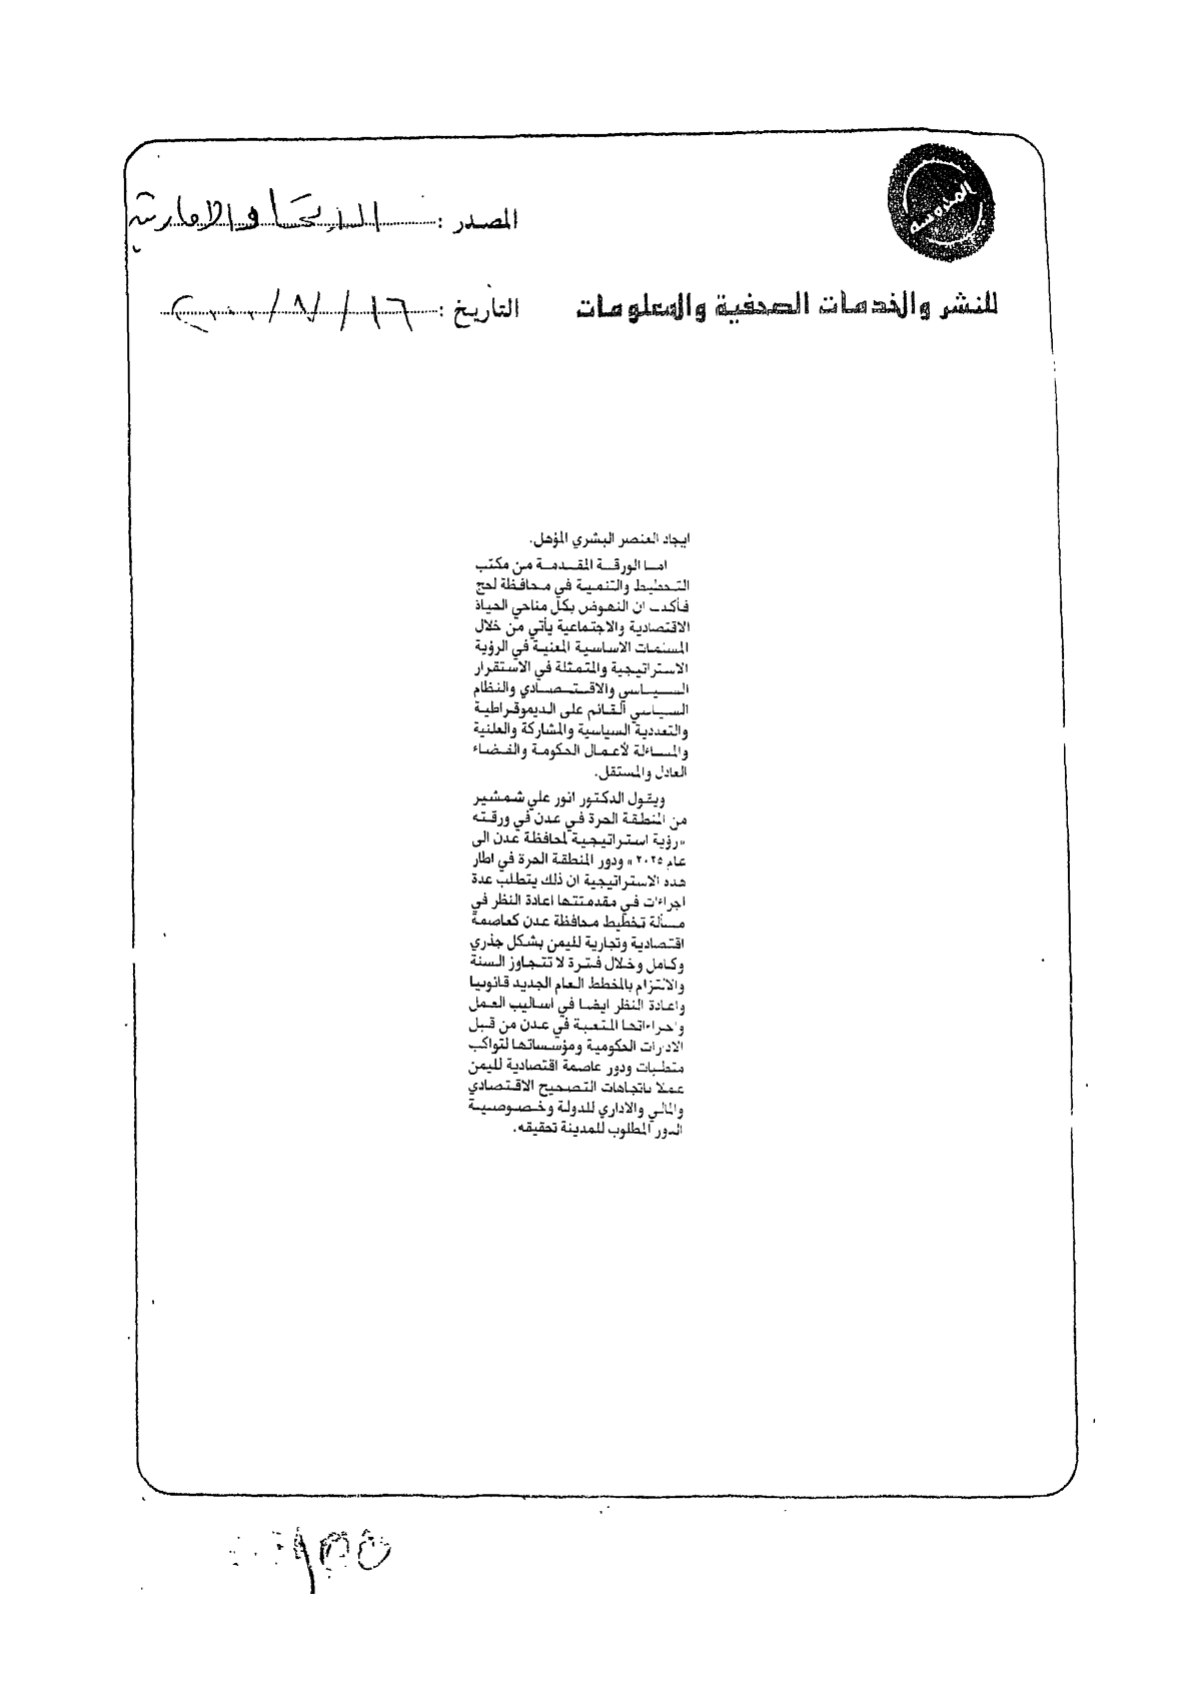 المدوسة
المصدر : البيان الاماراتية
للنشر والخدمات الصحفية والمعلومات
التأريخ : ١٦ / ٨ / ٢٠٠٠
ايجاد العنصر البشري المؤهل.
امـا الورقـة المقـدمـة مـن مكتب
التخطيط والتنمية في محافظة لحج
فأكدت ان النهوض بكل مناحي الحياة
الاقتصادية والاجتماعية يأتي من خلال
الاساسية المعنية في الرؤية
الاستراتيجية والمتمثلة في الاستقرار
السيـاسي والاقـتـصـادي والنظام
السيـاسي القـائم على الديموقـراطيـة
والتعددية السياسية والمشاركة والعلنية
والمساءلة لأعمـال الحكومة والقـضـاء
العادل والمستقل.
ويقول الدكتور انور علي شمشير
من المنطقة الحرة في عدن في ورقـتـه
«رؤية استراتيـجيـة لمحافظة عدن الى
عام ٢٠٢٥» ودور المنطقة الحرة في اطار
هذه الاستراتيجية ان ذلك يتطلب عدة
اجراءات في مقدمتها اعادة النظر في
مسألة تخطيط محافظة عدن كعاصمة
اقتصادية وتجارية لليمن بشكل جذري
وكامل وخلال فـتـرة لا تتـجـاوز السنة
والالتزام بالمخطط العام الجديد قانونيا
واعـادة النظر ايضـا في اسـاليب العمل
واجراءاتها المتعبة في عدن من قبل
الادارات الحكومية ومؤسساتها لتواكب
متطلبات ودور عاصمة اقتصادية لليمن
عملا باتجاهات التصحيح الاقتصادي
والمالي والاداري للدولة وخـصـوصيـة
الدور المطلوب للمدينة تحقيقه.